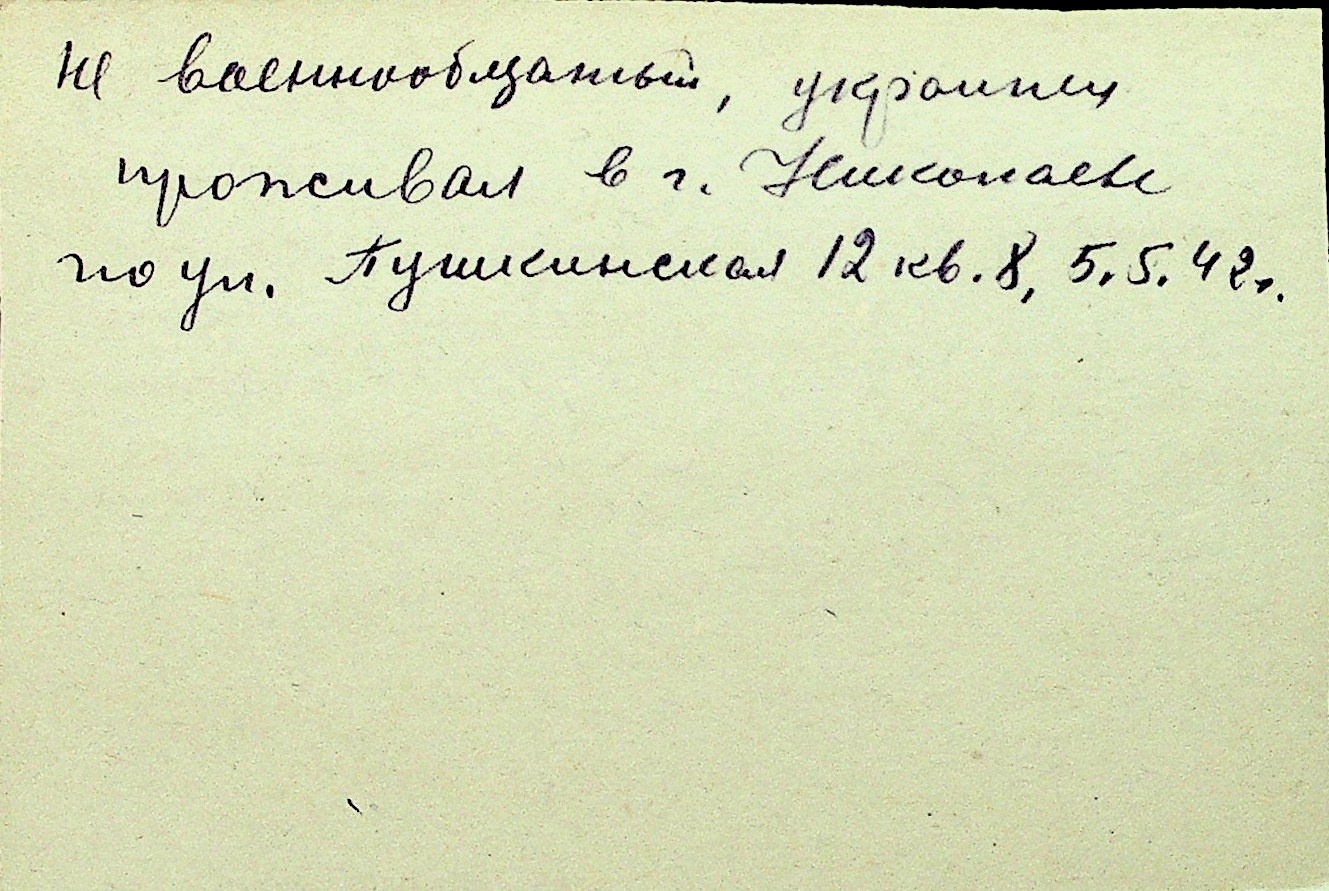 Не военнообязаный, украинец
проживал в г. Николаеве
по ул. Пушкинская 12 кв. 8, 5.5.42г.